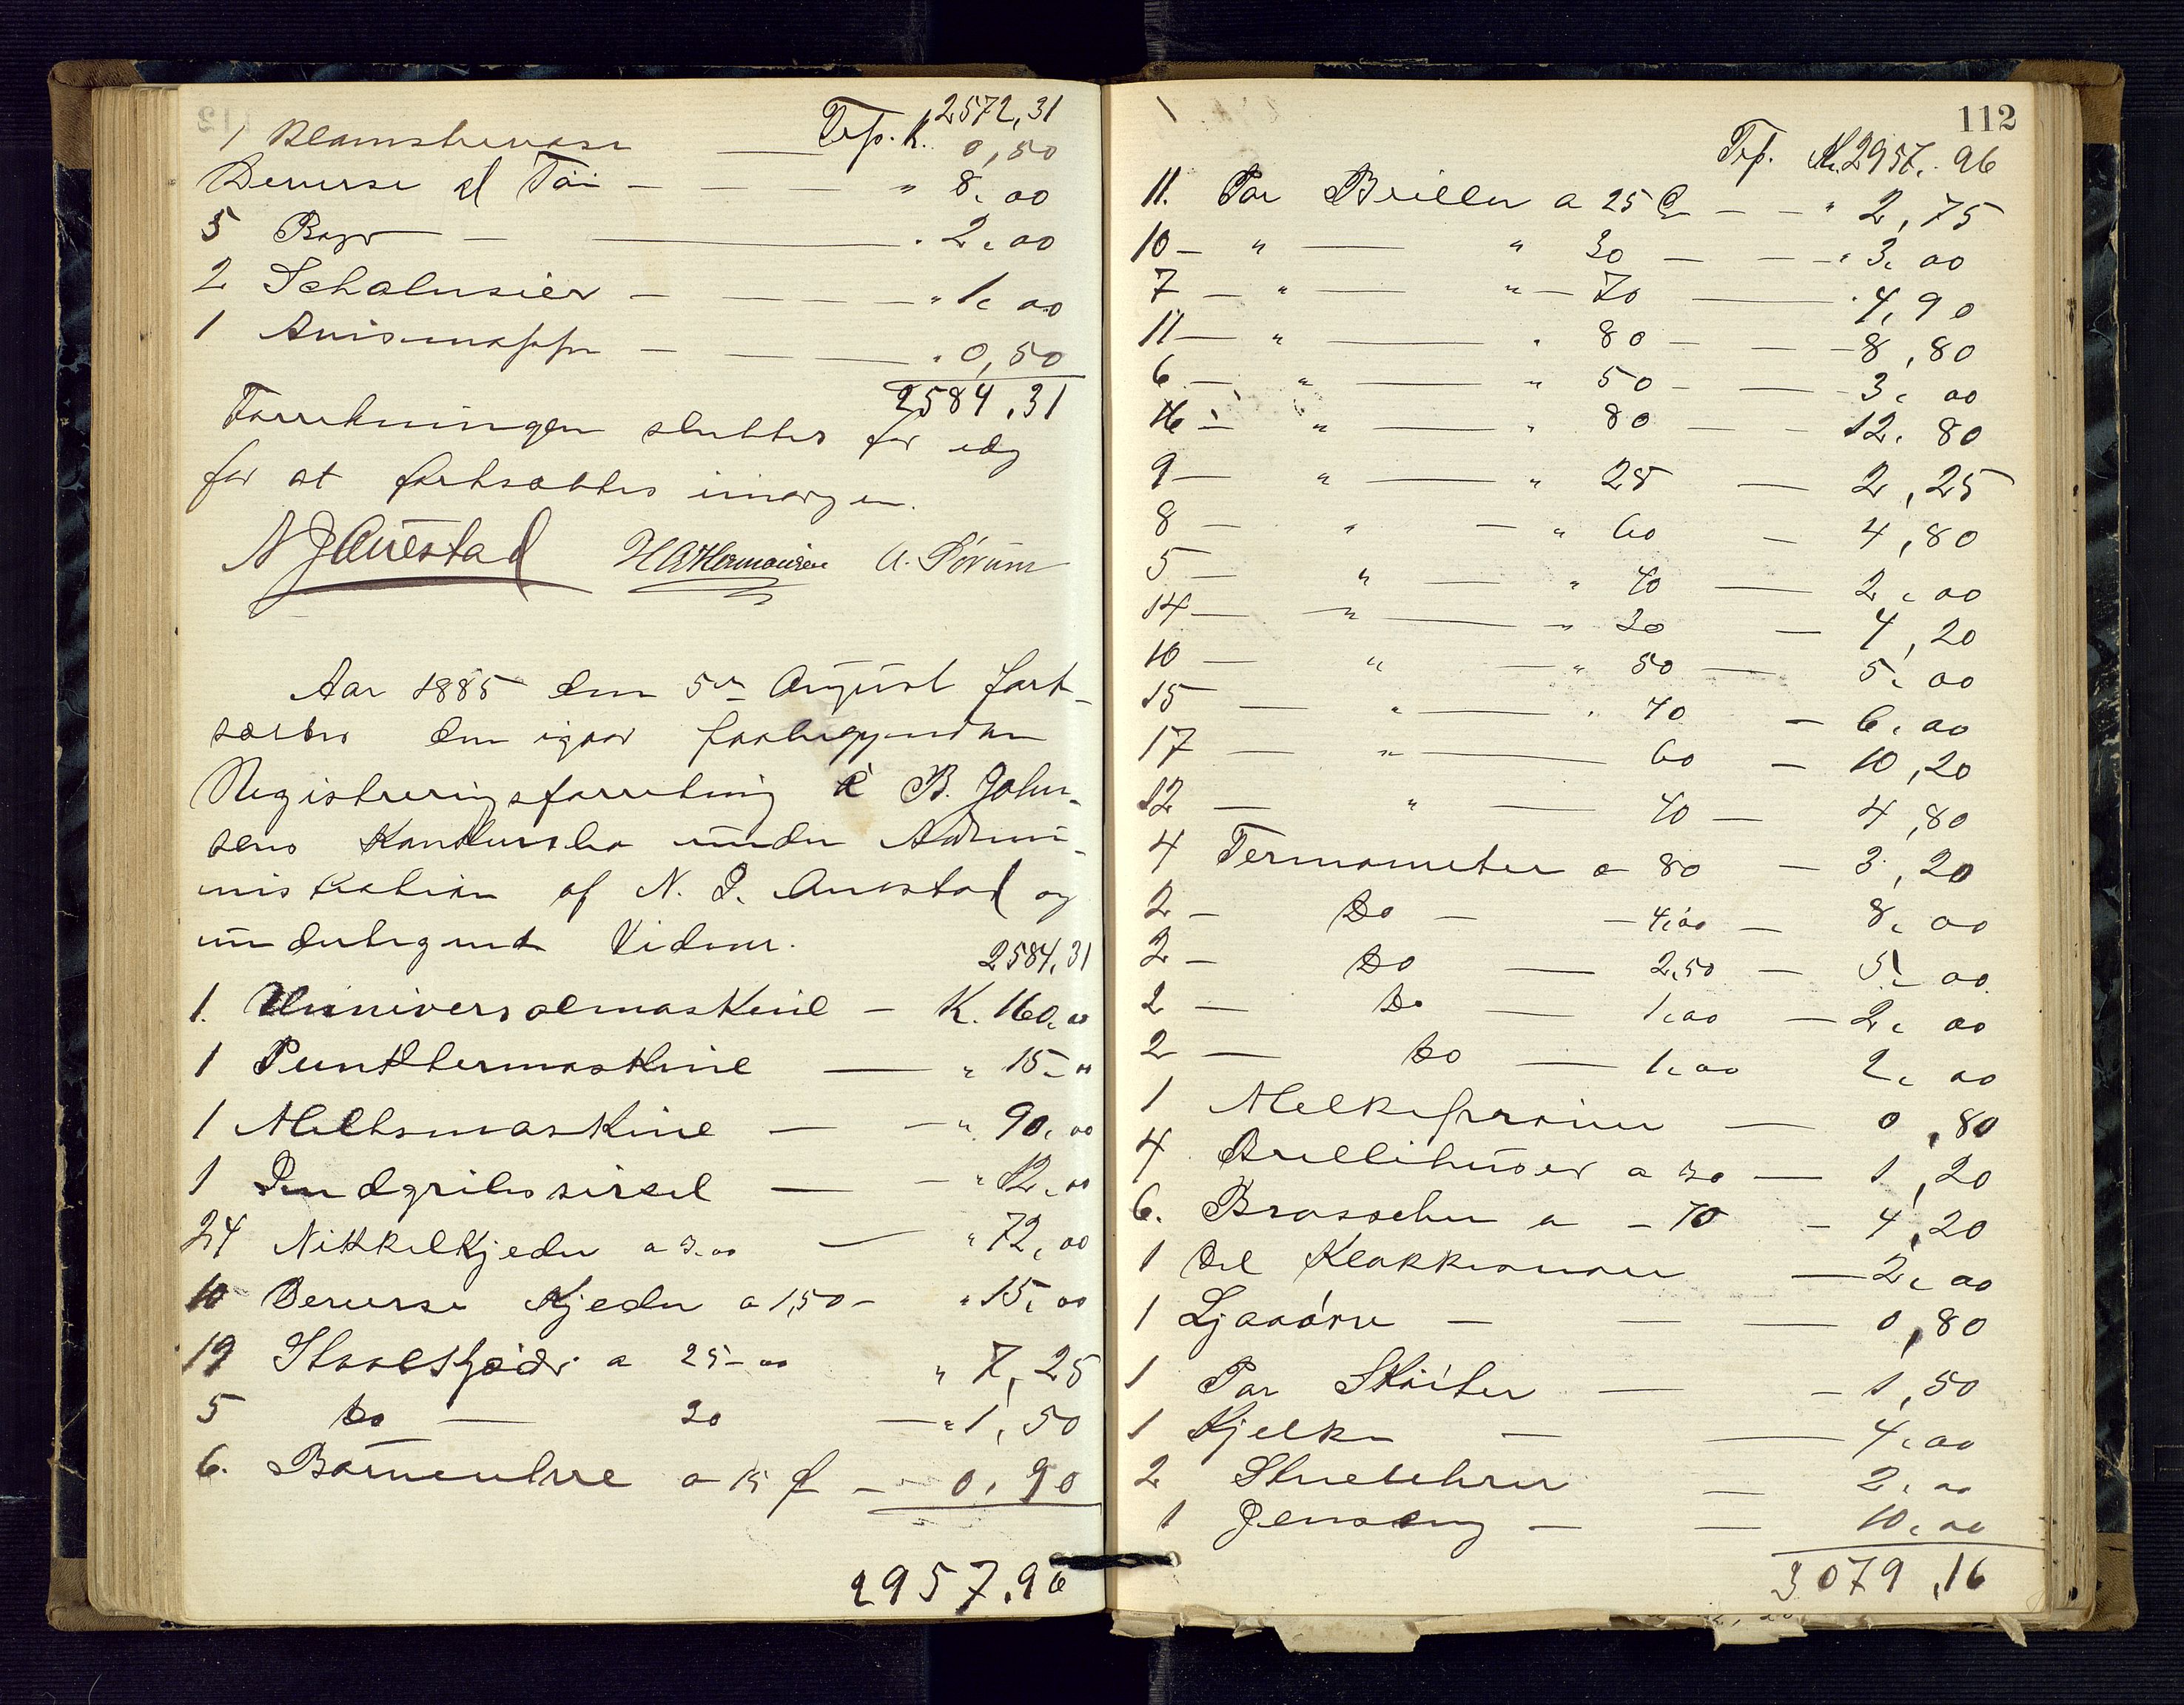 Trsp. K. 2572,31
1 Blomstervase — 0,50
Deverse d Töi — — — " 8,00
5 Bøger — — " 2,00
2 Schalusier — — — " 1,00
1 Avismappe — — " 0,50
2584,31
Forretningen sluttes for idag
for at fortsættes imorgen.
N J Auestad H A Hermansen A. Sörum
Aar 1885 den 5te August fort-
sættes den igaar paabegyndte
Registreringsforretning i B. John-
sens Konkursbo under Admi-
nistration af N. J. Auestad og
undertegnede Vidner.
2584,31
1. Universalmaskine — K. 160,00
1 Punktermaskine — " 15-00
1 Meltsmaskine — — " 90,00
1 Indgribssirkel — — " 12,00
24 Nikkelkjeder a 3.00 — " 72,00
10 Deverse Kjeder a 1,50 - " 15,00
19 Staalkjæder a 25-00 " 7,25
5 Do — 30 — " 1,50
6. Barneuhre a 15 Ø — 0,90
2957.96
112
Trsp. K. 2957,96
11. Par Briller a 25 Ø — — " 2,75
10 — " — " 30 — — " 3,00
7 — " — " — 70 — " 4,90
11 — " — " 80 — — 8,80
6 — " — " 50 — — 3,00
16 — " — " 80 — - 12,80
9 — " — " 25 — 2,25
8 — " — " 60 — 4,80
5 — " — " 40 — 2,00
14 — " — " 30 — 4,20
10 — " — " 50 — 5,00
15 — " — " 40 — 6,00
17 — " — 60 — 10,20
12 — " — 40 — 4,80
4 Termometer a 80 — 3,20
2 — Do — — 4,00 — 8,00
2 — Do — 2,50 — 5,00
2 — Do — 1,00 — 2,00
2 — Do — 1,00 2,00
1 Melkeprøver — 0,80
4 Brillehuser a 30 — 1,20
6. Brosscher a - 70 - 4,20
1 Del Klokkeramer — 2,00
1 Ljaaörv — — — 0,80
1 Par Sköiter — — 1,50
1 Kjelke — — 4,00
2 Stueuhrer — 2,00
1 Jernseng — — 10,00
3079,16